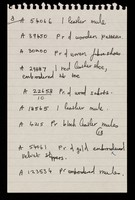 A
A 54066 1 leather mule.
A 37650 Pr of wooden
A 30000 Pr of woven
A 29887 1 red leather shoe,
embroidered at toe
A 22653 Pr of wood sabots.
10
A 18565 1 leather mule.
A 6215 Pr black leather mules
A 54061 Pr of gilt embroidered
velvet slippers.
A 123534 Pr embroidered mules.